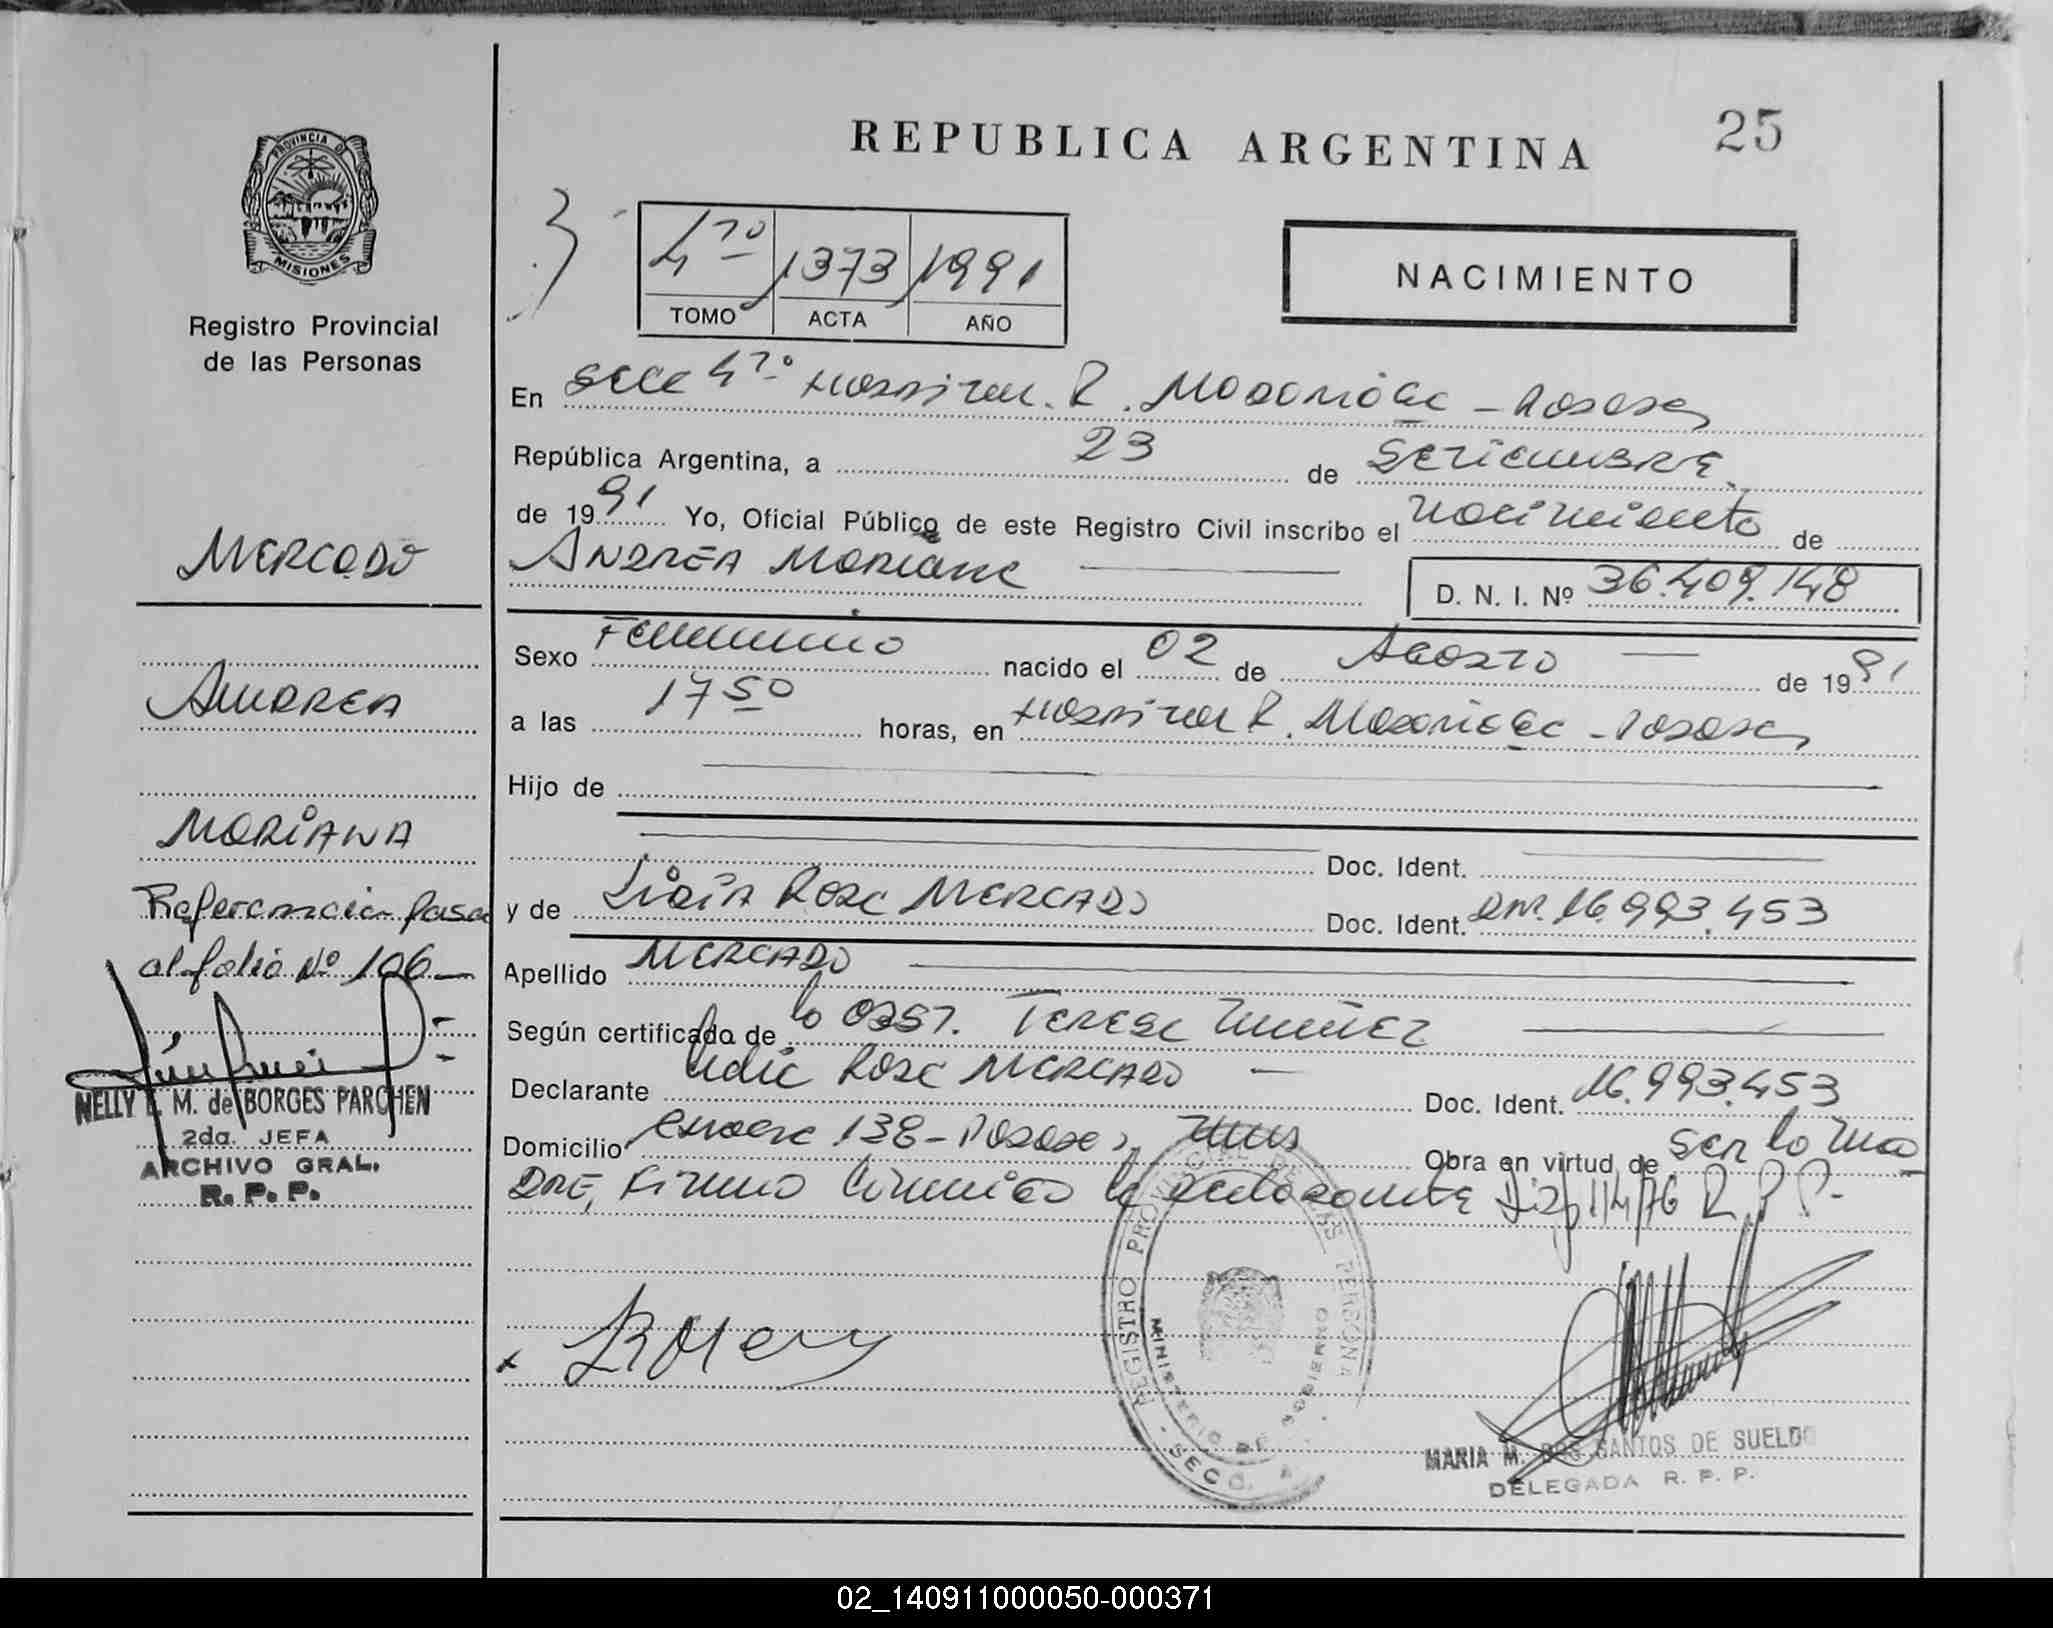 REPUBLICA ARGENTINA
25
PROVINCIA DE
MISIONES
Registro Provincial
de las Personas
4to 1373 1991
TOMO ACTA AÑO
NACIMIENTO
En Secc 4to Hospital R. Madariaga - Posadas
República Argentina, a 23 de Setiembre
de 1991 Yo, Oficial Público de este Registro Civil inscribo el nacimiento de
Andrea Mariana D. N. I. Nº 36.409.148
Sexo Femenino nacido el 02 de Agosto de 1991
a las 17 50 horas, en Hospital R. Madariaga - Posadas
Hijo de
Doc. Ident.
y de Lidia Rosa MERCADO Doc. Ident. DNI. 16.993.453
Apellido MERCADO
Según certificado de la Obst. Teresa Nuñez
Declarante Lidia Rosa MERCADO Doc. Ident. 16.993.453
Domicilio 138 - Posadas, Mnes Obra en virtud de ser la ma
dre, firma la declarante 1/4/76 R.P.P.
MERCADO
ANDREA
MARIANA
Referencia pasa
al folio Nº 106
NELLY E. M. de BORGES PARCHEN
2da. JEFA
ARCHIVO GRAL.
R. P. P.
REGISTRO PROVINCIAL DE LAS PERSONAS
MINISTERIO DE GOBIERNO
SECC.
MARIA M. DOS SANTOS DE SUELDO
DELEGADA R. P. P.
02_140911000050-000371